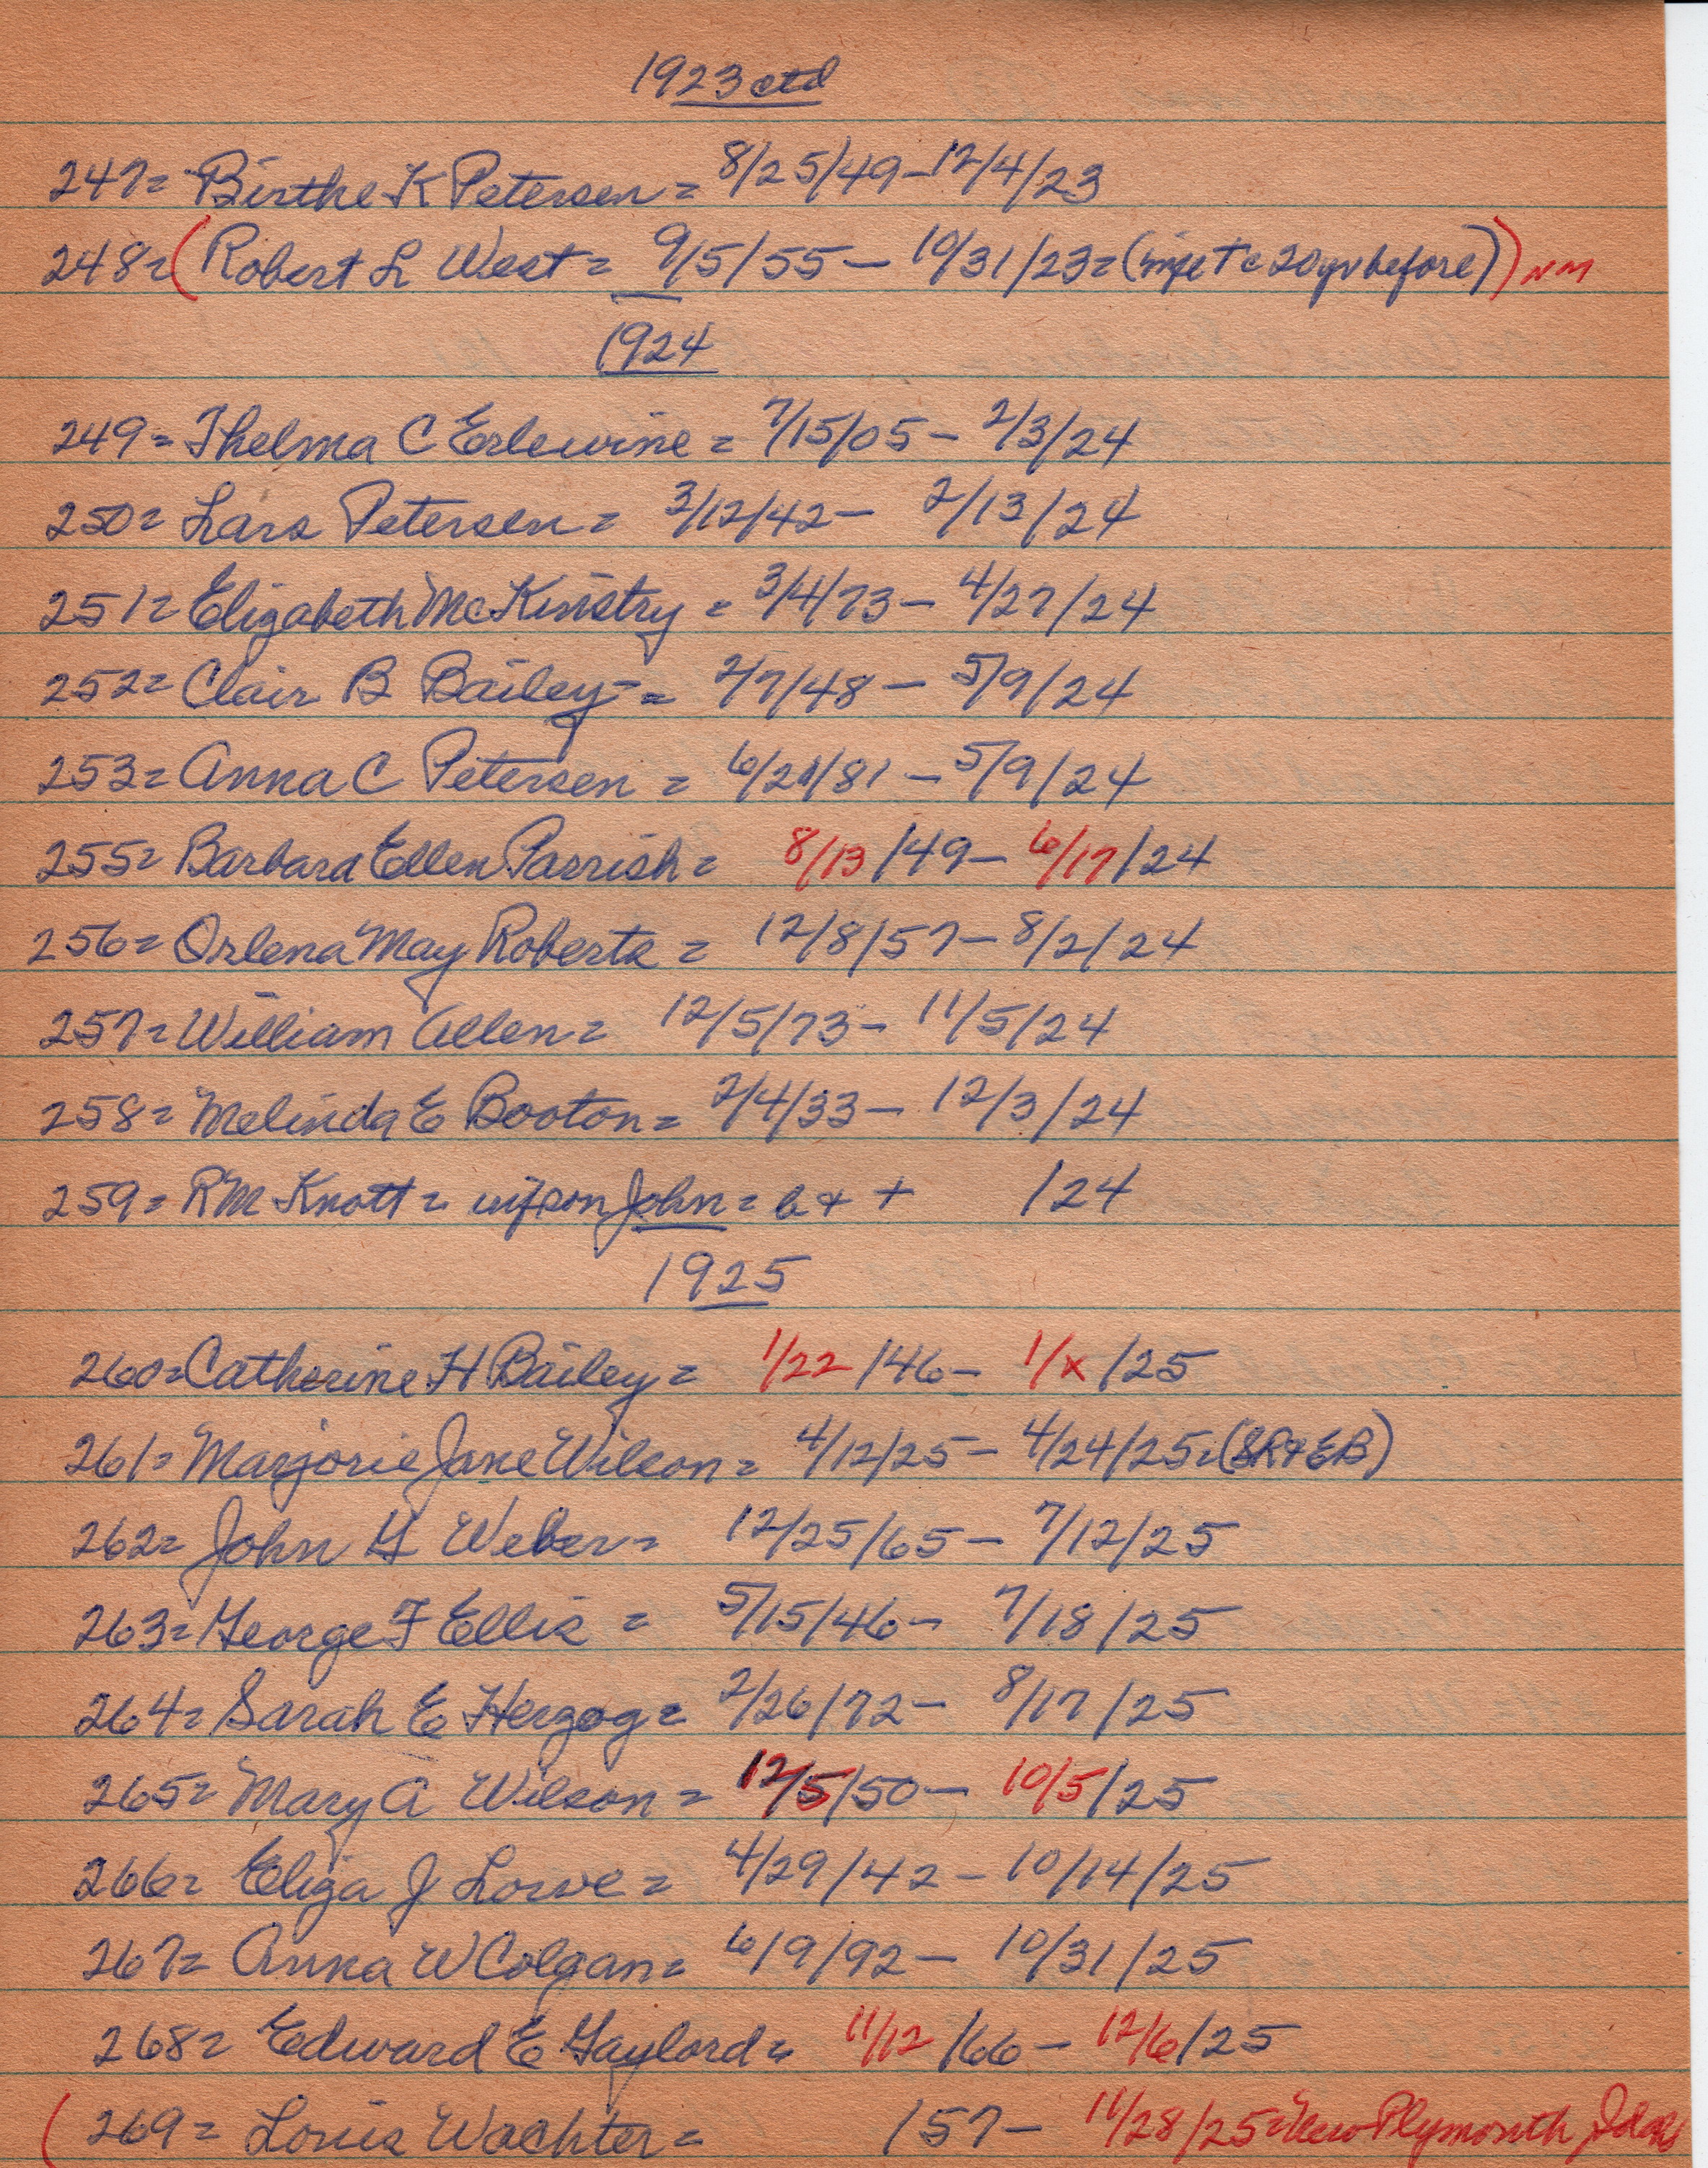 1923 ctd
247= Birthe K Petersen = 8/25/49 - 12/4/23
248= (Robert L West = 9/5/55 - 10/31/23 = ( 20 yr before)) NM
1924
249= Thelma C Erlewine = 7/15/05 - 2/3/24
250= Lars Petersen = 3/12/42 - 2/13/24
251= Elizabeth McKinstry = 3/4/73 - 4/27/24
252= Clair B Bailey = 2/7/48 - 5/9/24
253= Anna C Petersen = 6/21/81 - 5/9/24
255= Barbara Ellen Parrish = 8/13/49 - 6/17/24
256= Orlena May Roberts = 12/8/57 - 8/2/24
257= William Allen = 12/5/73 - 11/5/24
258= Melinda E Booton = 2/4/33 - 12/3/24
259= RM Knott = inf son John = b & + /24
1925
260= Catherine H Bailey = 1/22/46 - 1/x/25
261= Marjorie Jane Wilson = 4/12/25 - 4/24/25 = (SR & EB)
262= John G Weber = 12/25/65 - 7/12/25
263= George F Ellis = 5/15/46 - 7/18/25
264= Sarah E Herzog = 2/26/72 - 8/17/25
265= Mary A Wilson = 12/5/50 - 10/5/25
266= Eliza J Lowe = 4/29/42 - 10/14/25
267= Anna W Colgan = 6/9/92 - 10/31/25
268= Edward E Gaylord = 11/12/66 - 12/6/25
(269= Louis Wachter = /57 - 11/28/25 = New Plymouth Idaho